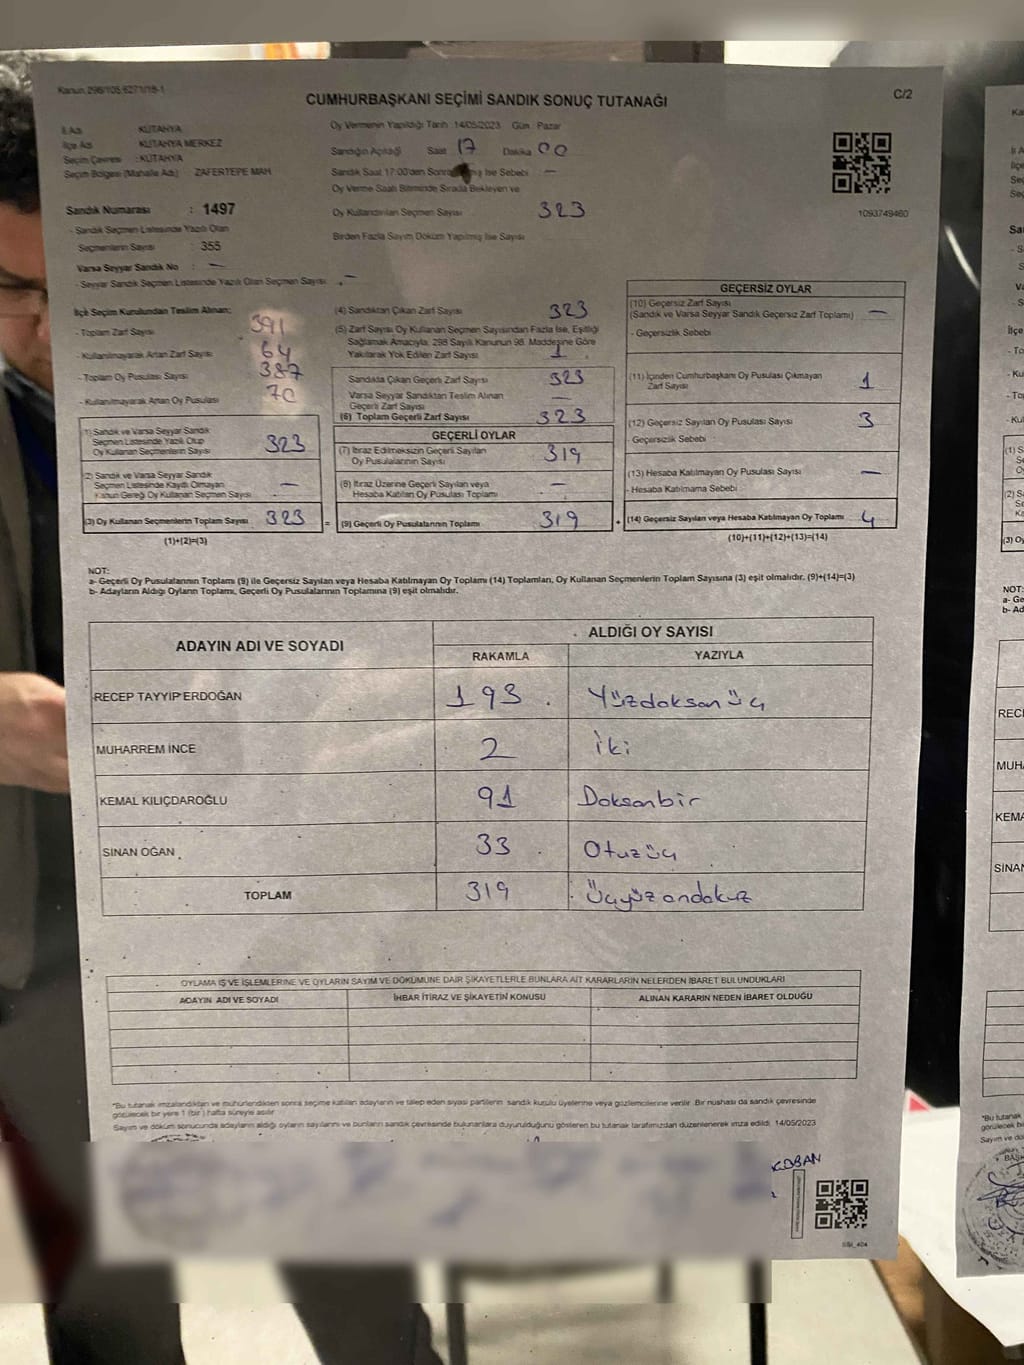 Kanun 298/105,6271/18-1
C/2
CUMHURBAŞKANI SEÇİMİ SANDIK SONUÇ TUTANAĞI
İl Adı : KÜTAHYA
İlçe Adı KÜTAHYA MERKEZ
Seçim Çevresi : KÜTAHYA
Seçim Bölgesi (Mahalle Adı) ZAFERTEPE MAH
Sandık Numarası : 1497
- Sandık Seçmen Listesinde Yazılı Olan
Seçmenlerin Sayısı : 355
Varsa Seyyar Sandık No : —
- Seyyar Sandık Seçmen Listesinde Yazılı Olan Seçmen Sayısı : —
Oy Vermenin Yapıldığı Tarih :14/05/2023 Gün : Pazar
Sandığın Açıldığı Saat 17 Dakika 00
Sandık Saat 17:00'den Sonra İse Sebebi —
Oy Verme Saati Bitiminde Sırada Bekleyen ve
Oy Kullandırılan Seçmen Sayısı 323
Birden Fazla Sayım Döküm Yapılmış İse Sayısı
1093749460
İlçe Seçim Kurulundan Teslim Alınan:
- Toplam Zarf Sayısı 391
- Kullanılmayarak Artan Zarf Sayısı 64
- Toplam Oy Pusulası Sayısı 387
- Kullanılmayarak Artan Oy Pusulası 70
(1) Sandık ve Varsa Seyyar Sandık
Seçmen Listesinde Yazılı Olup
Oy Kullanan Seçmenlerin Sayısı 323
(2) Sandık ve Varsa Seyyar Sandık
Seçmen Listesinde Kayıtlı Olmayan
Kanun Gereği Oy Kullanan Seçmen Sayısı —
(3) Oy Kullanan Seçmenlerin Toplam Sayısı 323 =
(1)+(2)=(3)
(4) Sandıktan Çıkan Zarf Sayısı 323
(5) Zarf Sayısı Oy Kullanan Seçmen Sayısından Fazla İse, Eşitliği
Sağlamak Amacıyla, 298 Sayılı Kanunun 98. Maddesine Göre
Yakılarak Yok Edilen Zarf Sayısı 1
Sandıkta Çıkan Geçerli Zarf Sayısı 323
Varsa Seyyar Sandıktan Teslim Alınan
Geçerli Zarf Sayısı —
(6) Toplam Geçerli Zarf Sayısı 323
GEÇERLİ OYLAR
(7) İtiraz Edilmeksizin Geçerli Sayılan
Oy Pusulalarının Sayısı 319
(8) İtiraz Üzerine Geçerli Sayılan veya
Hesaba Katılan Oy Pusulası Toplamı —
(9) Geçerli Oy Pusulalarının Toplamı 319 +
GEÇERSİZ OYLAR
(10) Geçersiz Zarf Sayısı
(Sandık ve Varsa Seyyar Sandık Geçersiz Zarf Toplamı) —
- Geçersizlik Sebebi :
(11) İçinden Cumhurbaşkanı Oy Pusulası Çıkmayan
Zarf Sayısı 1
(12) Geçersiz Sayılan Oy Pusulası Sayısı 3
-Geçersizlik Sebebi :
(13) Hesaba Katılmayan Oy Pusulası Sayısı —
- Hesaba Katılmama Sebebi :
(14) Geçersiz Sayılan veya Hesaba Katılmayan Oy Toplamı 4
(10)+(11)+(12)+(13)=(14)
NOT:
a- Geçerli Oy Pusulalarının Toplamı (9) ile Geçersiz Sayılan veya Hesaba Katılmayan Oy Toplamı (14) Toplamları, Oy Kullanan Seçmenlerin Toplam Sayısına (3) eşit olmalıdır. (9)+(14)=(3)
b- Adayların Aldığı Oyların Toplamı, Geçerli Oy Pusulalarının Toplamına (9) eşit olmalıdır.
ADAYIN ADI VE SOYADI ALDIĞI OY SAYISI
RAKAMLA YAZIYLA
RECEP TAYYİP ERDOĞAN 193 Yüzdoksanüç
MUHARREM İNCE 2 İki
KEMAL KILIÇDAROĞLU 91 Doksanbir
SİNAN OĞAN 33 Otuzüç
TOPLAM 319 Üçyüzondokuz
OYLAMA İŞ VE İŞLEMLERİNE VE OYLARIN SAYIM VE DÖKÜMÜNE DAİR ŞİKAYETLERLE BUNLARA AİT KARARLARIN NELERDEN İBARET BULUNDUKLARI
ADAYIN ADI VE SOYADI İHBAR İTİRAZ VE ŞİKAYETİN KONUSU ALINAN KARARIN NEDEN İBARET OLDUĞU
*Bu tutanak imzalandıktan ve mühürlendikten sonra seçime katılan adayların ve talep eden siyasi partilerin sandık kurulu üyelerine veya gözlemcilerine verilir. Bir nüshası da sandık çevresinde
görülecek bir yere 1 (bir ) hafta süreyle asılır.
Sayım ve döküm sonucunda adayların aldığı oyların sayılarını ve bunların sandık çevresinde bulunanlara duyurulduğunu gösteren bu tutanak tarafımızdan düzenlenerek imza edildi. 14/05/2023
ÇOBAN